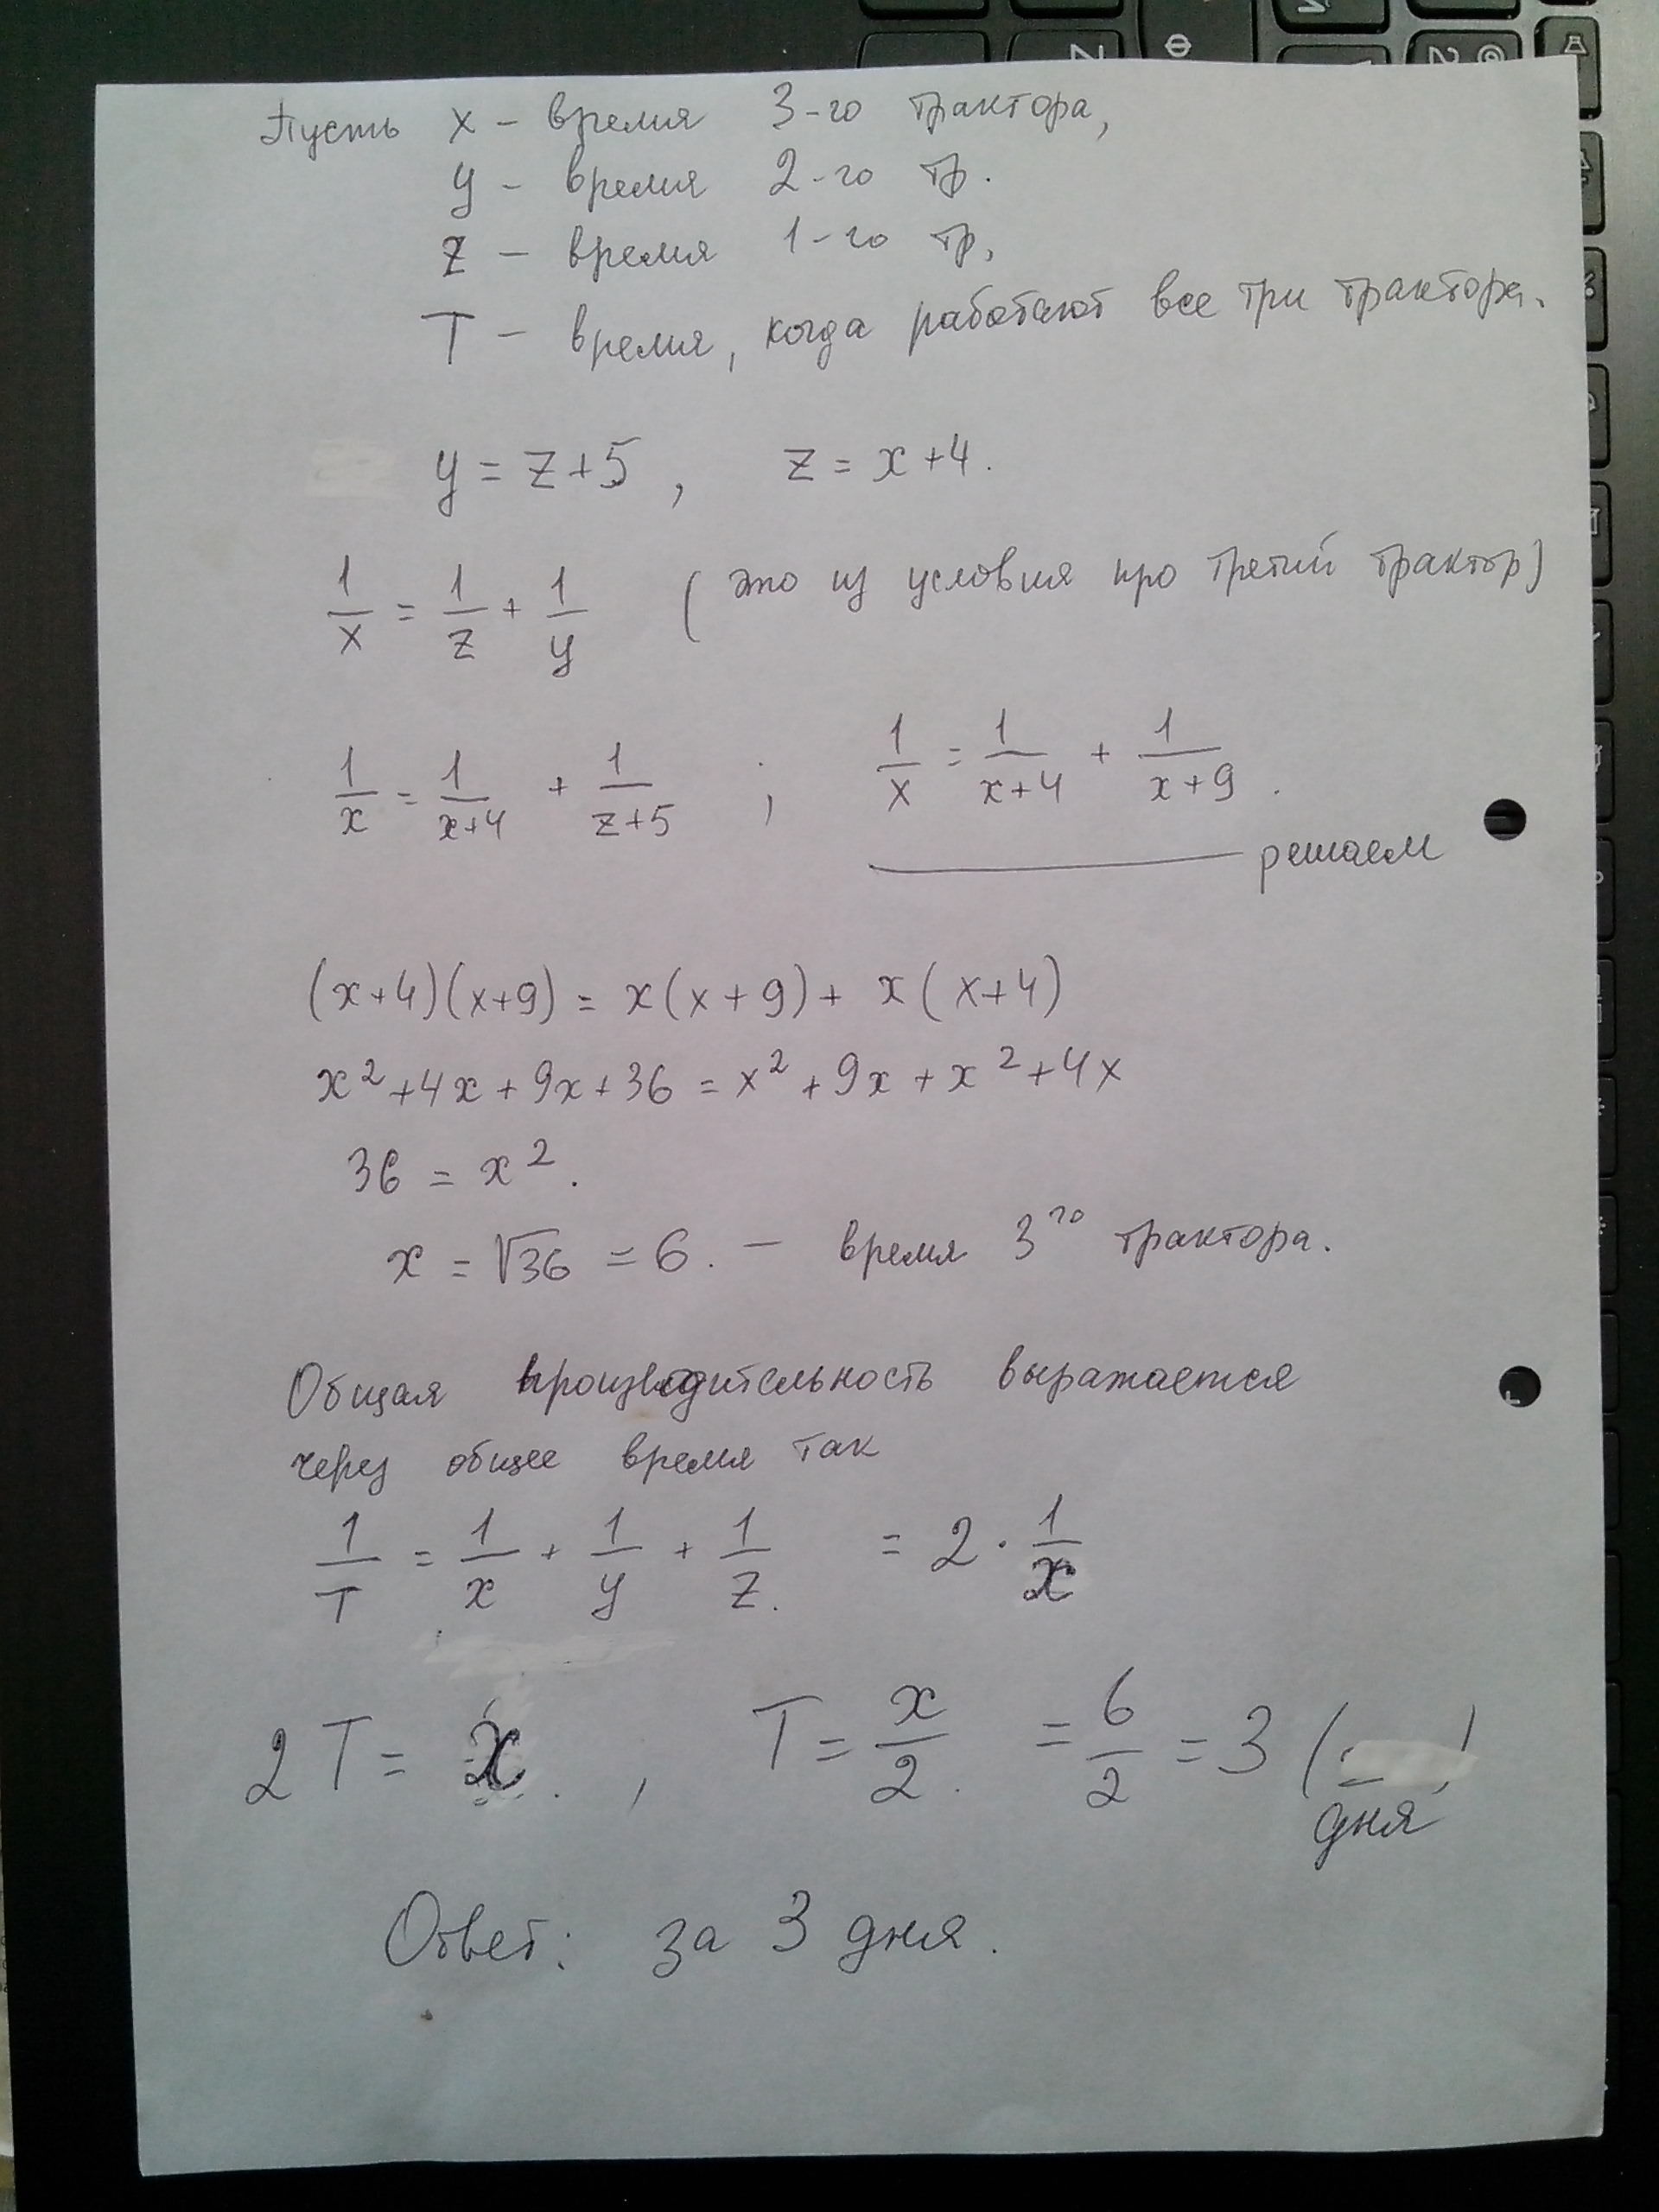 Пусть x – время 3-го трактора,
y – время 2-го тр.
z – время 1-го тр,
T – время, когда работают все три трактора.
y = z+5 , z = x+4.
1/x = 1/z + 1/y (это из условия про третий трактор)
1/x = 1/(x+4) + 1/(z+5) ; 1/x = 1/(x+4) + 1/(x+9) .
решаем
(x+4)(x+9) = x(x+9) + x(x+4)
x² +4x + 9x + 36 = x² + 9x + x² + 4x
36 = x² .
x = √36 = 6. – время 3го трактора.
Общая производительность выражается
через общее время так
1/T = 1/x + 1/y + 1/z. = 2 · 1/x
2T = x. , T = x/2. = 6/2 = 3 ( )
дня
Ответ: за 3 дня.